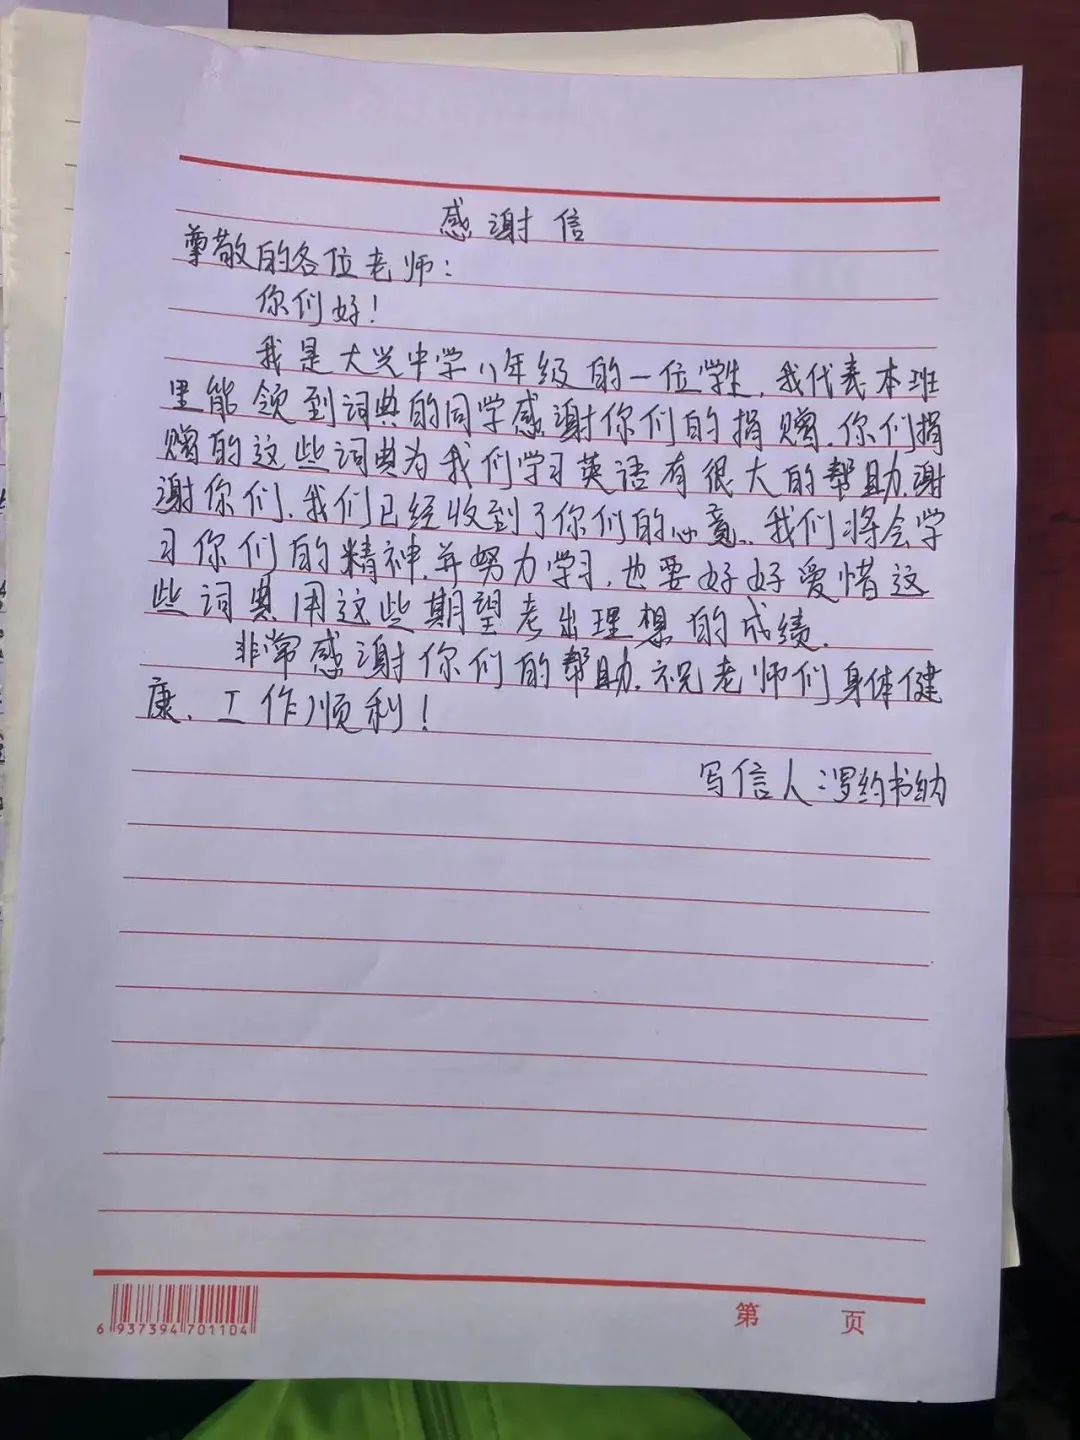 感谢信
尊敬的各位老师：
你们好！
我是大兴中学八年级的一位学生，我代表本班
里能领到词典的同学感谢你们的捐赠．你们捐
赠的这些词典为我们学习英语有很大的帮助．谢
谢你们．我们已经收到了你们的心意．我们将会学
习你们的精神．并努力学习．也要好好爱惜这
些词典用这些期望考出理想的成绩．
非常感谢你们的帮助．祝老师们身体健
康．工作顺利！
写信人：罗约书纳
第 页
6 937394 701104